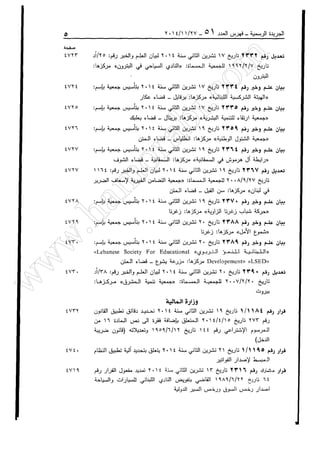 الجريدة الرسمية ـ فهرس العدد ٥١ ـ ٢٠١٤/١١/٢٧
٥
صفحة
تعديل رقم ٢٣٣٢ تاريخ ١٧ تشرين الثاني سنة ٢٠١٤ لبيان العلم والخبر رقم: /٢٥أد
تاريخ ١٩٢٢/٢/٧ للجمعية المسماة: «النادي السياحي في البترون» مركزها:
البترون
٤٧٢٣
بيان علم وخبر رقم ٢٣٣٤ تاريخ ١٧ تشرين الثاني سنة ٢٠١٤ بتأسيس جمعية بإسم:
مركزها: برقايل ـ قضاء عكار
٤٧٢٤
بيان علم وخبر رقم ٢٣٣٥ تاريخ ١٧ تشرين الثاني سنة ٢٠١٤ بتأسيس جمعية بإسم:
«جمعية ارتقاء للتنمية البشرية» مركزها: بريتال ـ قضاء بعلبك
٤٧٢٥
بيان علم وخبر رقم ٢٣٥٩ تاريخ ١٩ تشرين الثاني سنة ٢٠١٤ بتأسيس جمعية بإسم:
مركزها: انطلياس ـ قضاء المتن
٤٧٢٦
بيان علم وخبر رقم ٢٣٦٤ تاريخ ١٩ تشرين الثاني سنة ٢٠١٤ بتأسيس جمعية بإسم:
«رابطة آل هرموش في السمقانية» مركزها: السمقانية ـ قضاء الشوف
٤٧٢٧
تعديل رقم ٢٣٦٧ تاريخ ١٩ تشرين الثاني سنة ٢٠١٤ لبيان العلم والخبر رقم: ١١٦٤
تاريخ ٢٠٠٨/٩/٢٧ للجمعية المسماة: «جمعية التضامن الخيرية لإسعاف الضرير
في لبنان» مركزها: سن الفيل ـ قضاء المتن
٤٧٢٧
بيان علم وخبر رقم ٢٣٧٠ تاريخ ١٩ تشرين الثاني سنة ٢٠١٤ بتأسيس جمعية بإسم:
«حركة شباب زغرتا الزاوية» مركزها: زغرتا
٤٧٢٨
بيان علم وخبر رقم ٢٣٨٨ تاريخ ٢٠ تشرين الثاني سنة ٢٠١٤ بتأسيس جمعية بإسم:
«شموع الأمل» مركزها: زغرتا
٤٧٢٩
بيان علم وخبر رقم ٢٣٨٩ تاريخ ٢٠ تشرين الثاني سنة ٢٠١٤ بتأسيس جمعية بإسم:
«Lebanese Society For Educational
Development» «LSED» مركزها: مزرعة يشوع ـ قضاء المتن
٤٧٣٠
تعديل رقم ٢٣٩٠ تاريخ ٢٠ تشرين الثاني سنة ٢٠١٤ لبيان العلم والخبر رقم: /٣٨أد
تاريخ ٢٠٠٧/٢/٢٠ للجمعية المسماة: «جمعية تنمية المشرق» مركزها:
بيروت
٤٧٣٠
وزارة المالية
قرار رقم ١/١١٨٤ تاريخ ١٩ تشرين الثاني سنة ٢٠١٤ تحديد دقائق تطبيق القانون
رقم ٢٧٣ تاريخ ٢٠١٤/٤/١٥ المتعلق بإضافة فقرة الى نص المادة ١٦ من
المرسوم الإشتراعي رقم ١٤٤ تاريخ ١٩٥٩/٦/١٢ وتعديلاته (قانون ضريبة
الدخل)
٤٧٣٢
قرار رقم ١/١١٩٥ تاريخ ٢١ تشرين الثاني سنة ٢٠١٤ يتعلق بتحديد آلية تطبيق النظام
المبسط لإصدار الفواتير
٤٧٤٠
قرار مشترك رقم ٢٣١٦ تاريخ ١٣ تشرين الثاني سنة ٢٠١٤ تمديد مفعول القرار رقم
١٤ تاريخ ١٩٨٢/٦/٢٢ القاضي بتفويض النادي اللبناني للسيارات والسياحة
اصدار رخص السوق ورخص السير الدولية
٤٧١٩